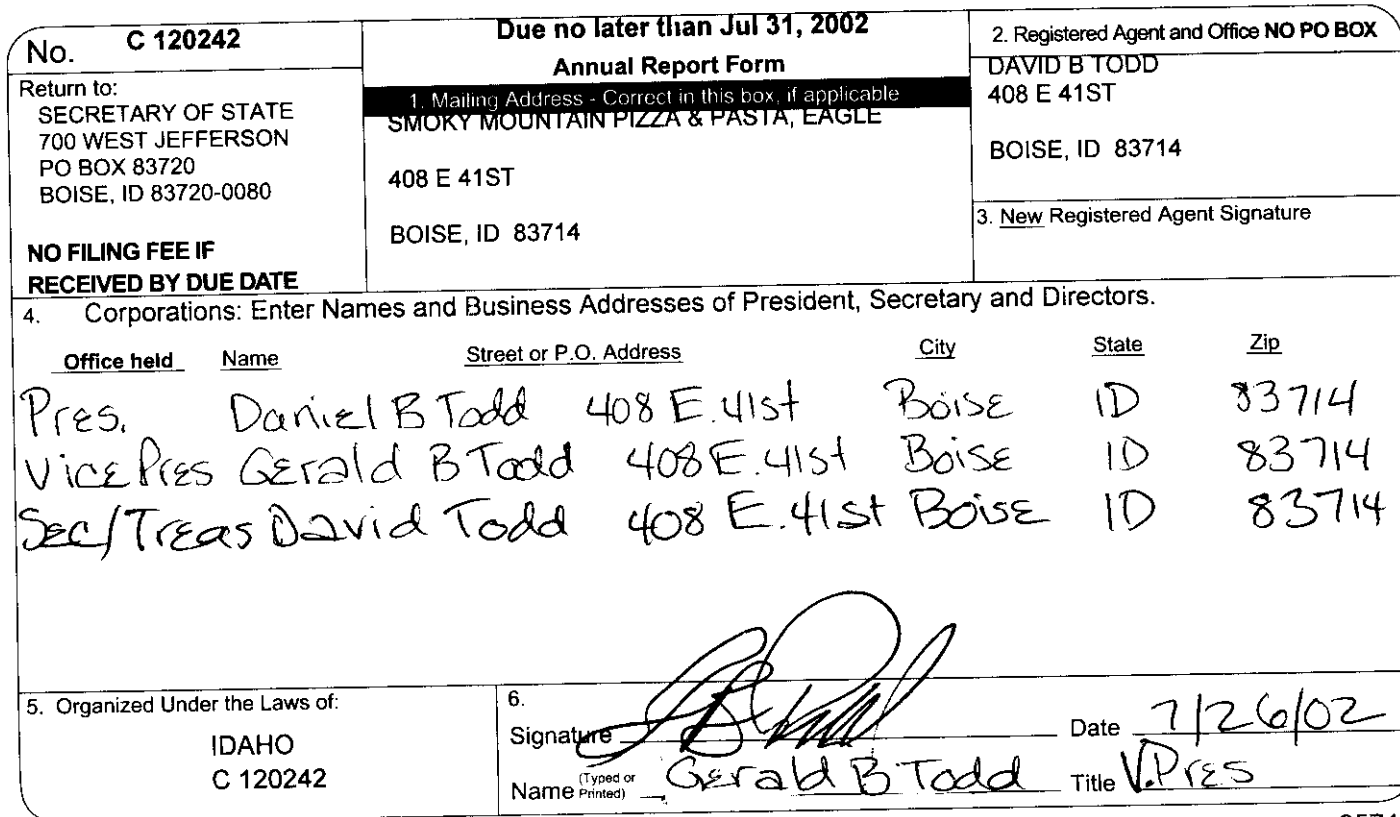 No. C 120242
Return to:
SECRETARY OF STATE
700 WEST JEFFERSON
PO BOX 83720
BOISE, ID 83720-0080
NO FILING FEE IF
RECEIVED BY DUE DATE
Due no later than Jul 31, 2002
Annual Report Form
1. Mailing Address - Correct in this box, if applicable
SMOKY MOUNTAIN PIZZA & PASTA, EAGLE
408 E 41ST
BOISE, ID 83714
2. Registered Agent and Office NO PO BOX
DAVID B TODD
408 E 41ST
BOISE, ID 83714
3. New Registered Agent Signature
4. Corporations: Enter Names and Business Addresses of President, Secretary and Directors.
Office held Name Street or P.O. Address City State Zip
Pres. Daniel B Todd 408 E. 41st Boise ID 83714
Vice Pres Gerald B Todd 408 E. 41st Boise ID 83714
Sec/Treas David Todd 408 E. 41st Boise ID 83714
5. Organized Under the Laws of:
IDAHO
C 120242
6.
Signature Date 7/26/02
Name (Typed or Printed) Gerald B Todd Title V.Pres